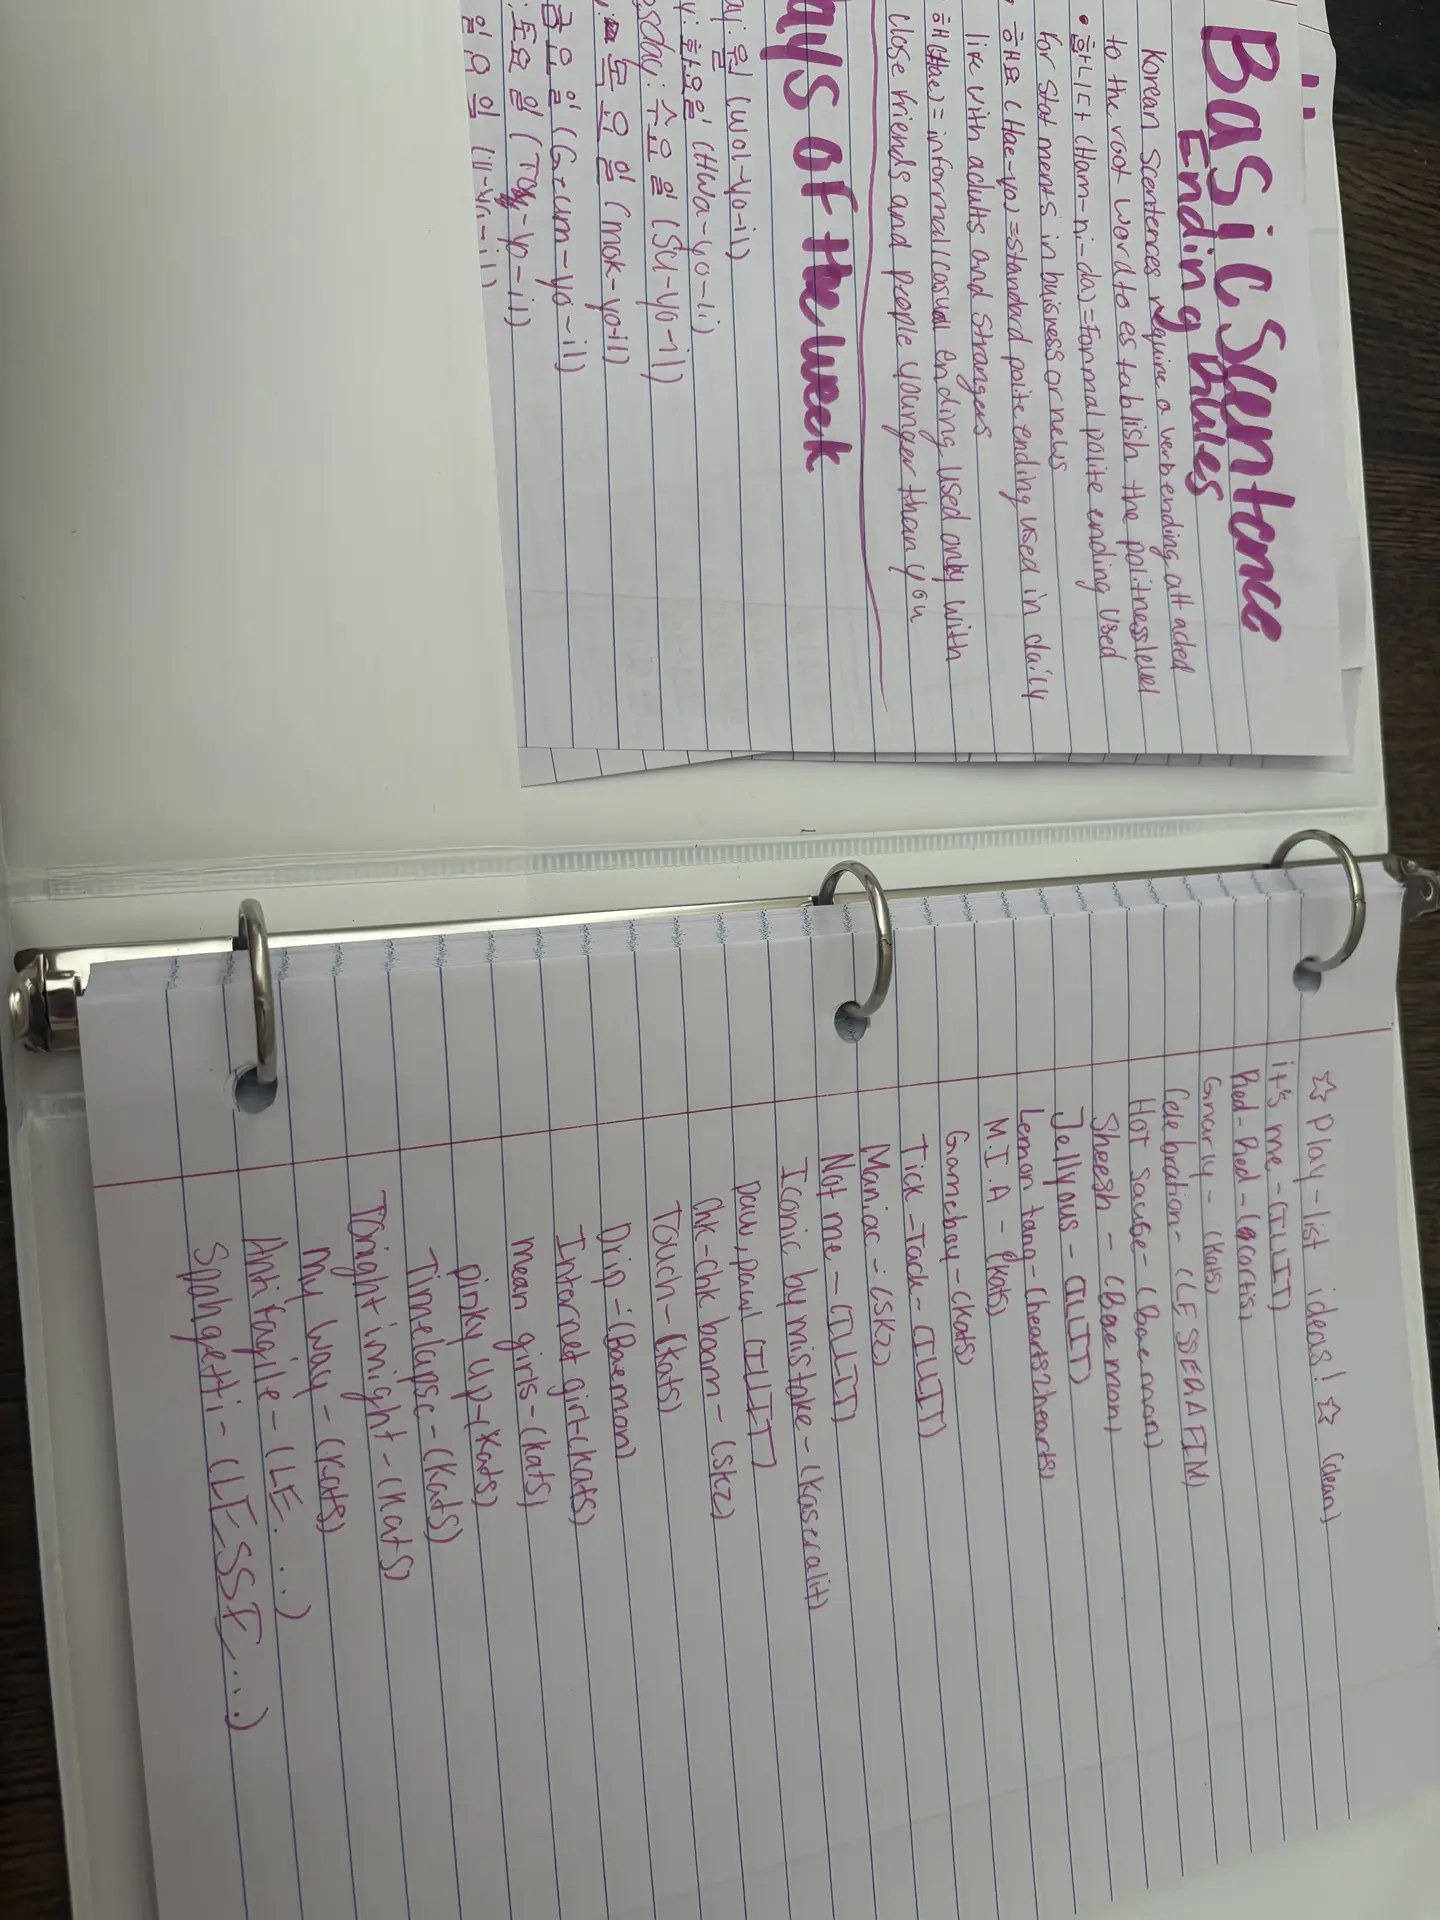 Basic Scentence
Ending Rules
Korean Scentences require a verb ending attached
to the root word to establish the politness level
• 합니다 (Ham-ni-da) = Formal polite ending used
for statments in buisness or news
• 해요 (Hae-yo) = Standard polite ending used in daily
life with adults and strangers
해 (Hae) = informal/casual ending used only with
close friends and people younger than you
ays of the week
ay: 월 (Wol-yo-il)
y: 화요일 (Hwa-yo-li)
esday: 수요일 (Su-yo-il)
목요일 (mok-yo-il)
금요일 (Geum-yo-il)
: 토요일 (Toy-yo-il)
일요일 (il-ya-il)
☆ Play-list ideas! ☆ (clean)
it's me - (ILLIT)
Red-Red - (cortis)
Gnarly - (kats)
Celebration - (LESSERAFIM)
Hot Sause - (Baemon)
Sheesh - (Baemon)
Jellyous - (ILLIT)
Lemon tang - (hearts2hearts)
M.I.A - (kats)
Gameboy - (kats)
Tick-Tack - (ILLIT)
Maniac - (skz)
Not me - (ILLIT)
Iconic by mistake - (kaseralit)
paw, paw (ILLIT)
Chk-chk boom - (skz)
Touch - (kats)
Drip - (Baemon)
Internet girl - (kats)
mean girls - (kats)
pinky up - (kats)
Timelapse - (kats)
Tonight imight - (kats)
My way - (kats)
Antifragile - (LE...)
Spphgetti - (LESSE...)